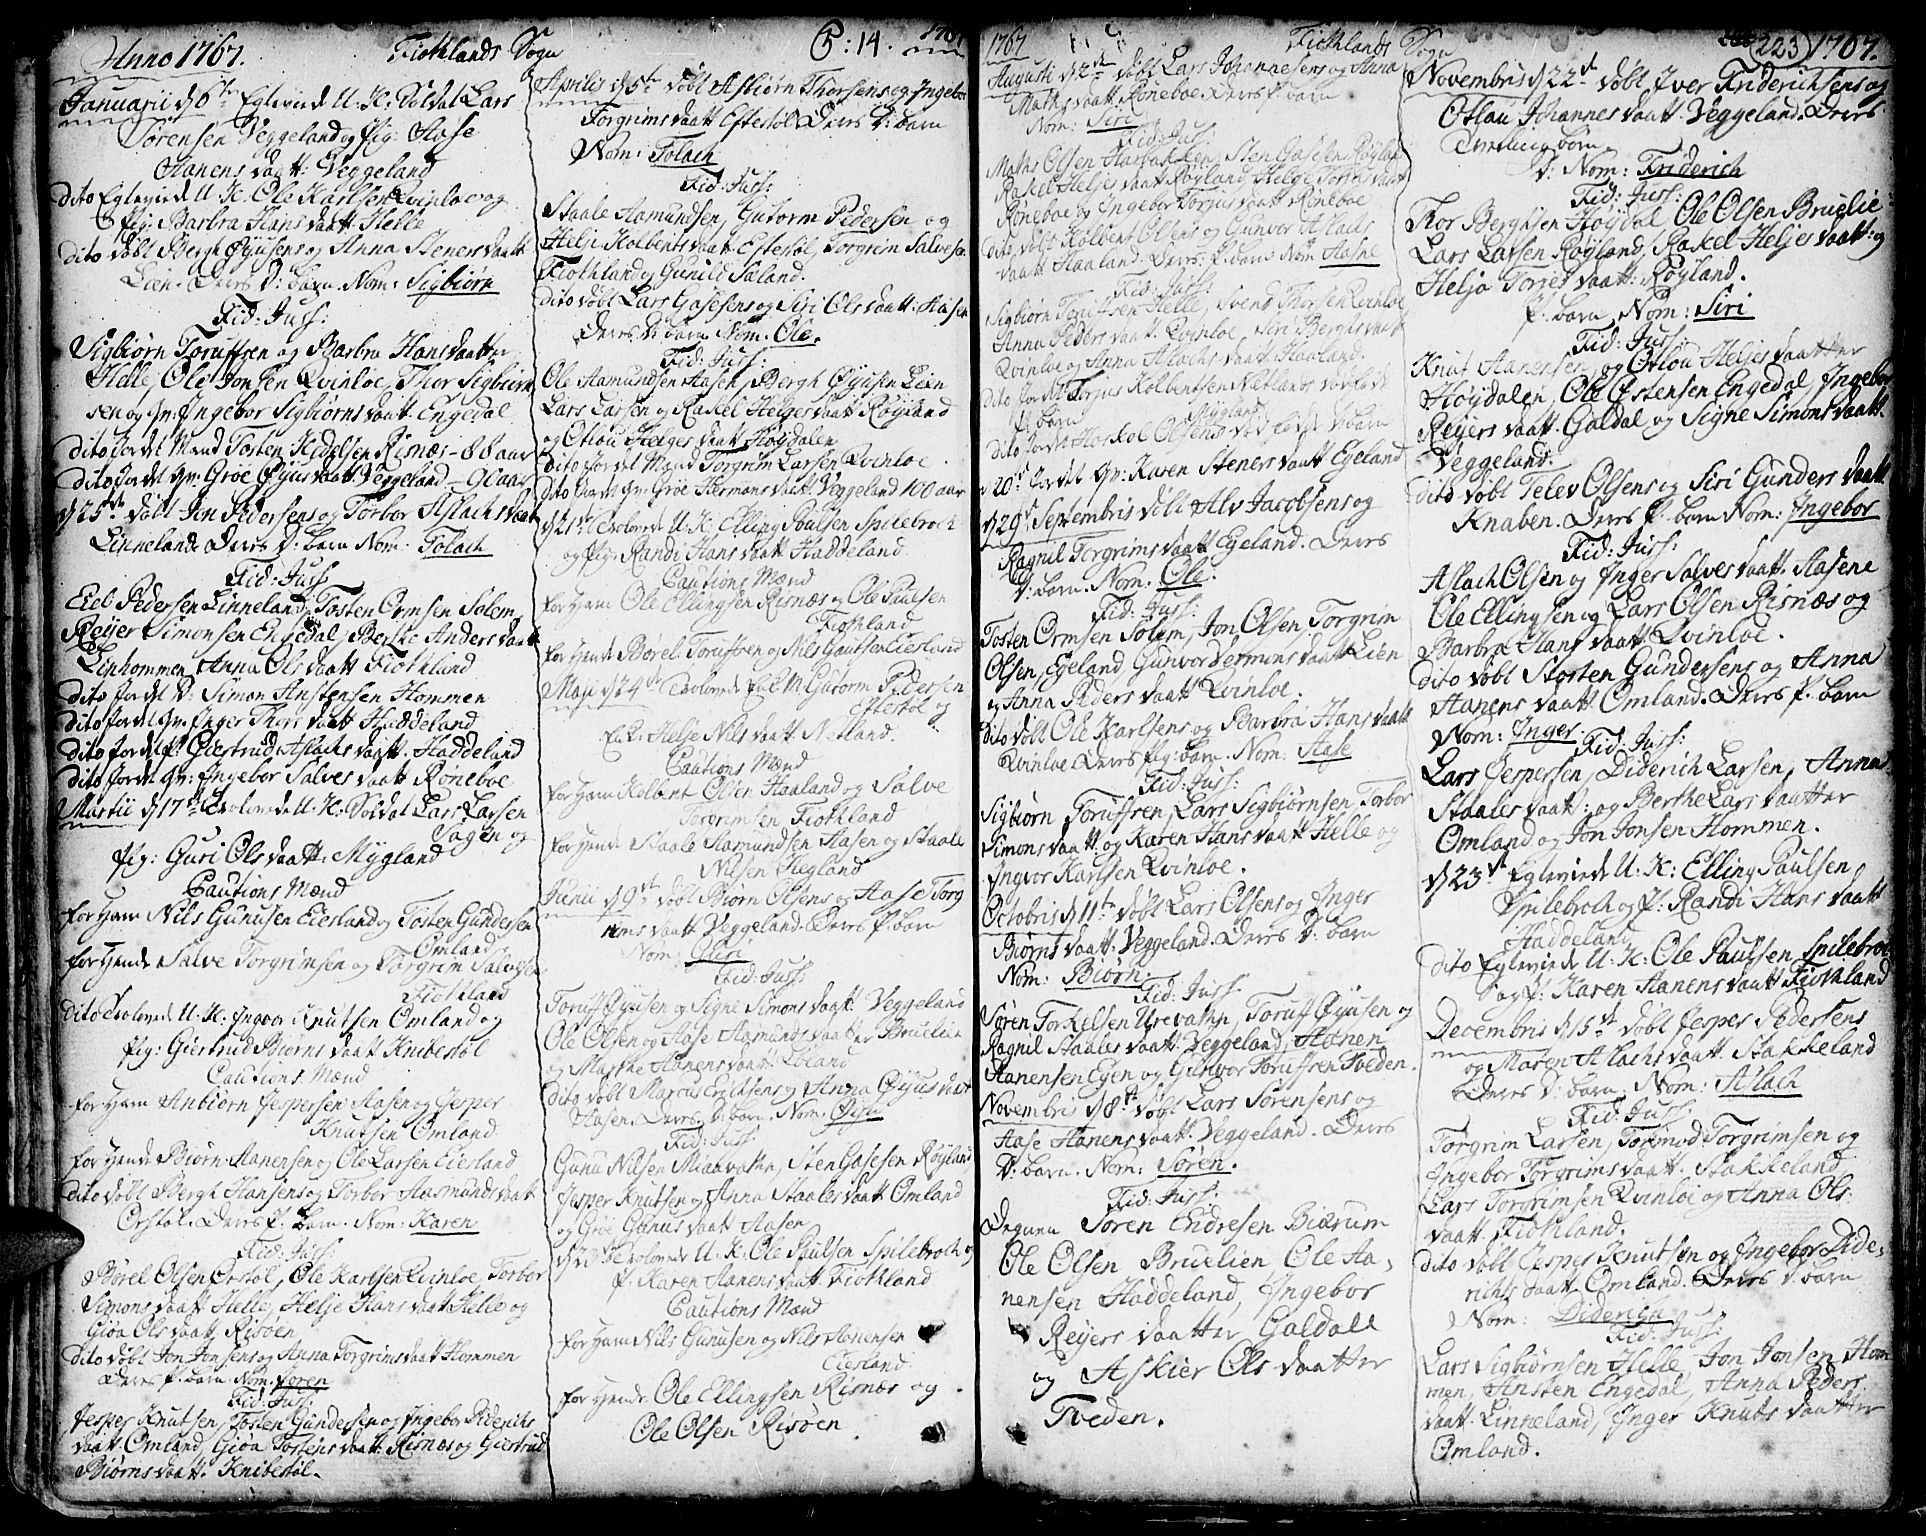 Anno 1767. Fiothlands Sogn P: 14. 1767
Januarii d 6te Egteviede U. K: Soldat Lars
Sörensen Veggeland og Pig: Aase
Aanens daatt: Veggeland
dito Egteviede U. K: Ole Karlsen Qvinloe og
Pig: Barbra Hans daatt Helle
dito döbt Bergh Öyusens og Anna Steners daatt
Lien. Deres D: barn. Nom: Sigbiørn
Fid: Juss:
Sigbiørn Toruffsen og Barbra Hans daatter
Helle, Ole Jonsen Qvinloe, Thor Sigbiørn
sen og qv: Ingebor Sigbiørns daatt Engedal
dito for det Mand Tosten Kedelsen Risnæs - 88 aar
dito for det qv: Groe Öyus daatt Veggeland - 90 aar
d 25de döbt Jon Pedersens og Torbor Aslachs daatt
Linneland. Deres D: barn Nom: Tolach
Fid: Juss
Eeb Pedersen Linneland, Tosten Ormsen Solem,
Reyer Simonsen Engedal, Berthe Anders daatt
Linhommen, Anna Ols daatt Fiothland
dito for det D: Simon Anstensen Hommen
dito for det qv: Inger Thors daatt Haddeland
dito for det P: Giertrud Aslachs daatt. Haddeland
dito for det qv: Ingebor Salves daatt Röneboe
Martii d 17de Trolovede U. K: Soldat Lars Larsen
Sagen og
Pig: Guri Ols daatt: Mygland
Cautions Mænd
for Ham Nils Gunusen Eiesland og Tosten Gundersen
Omland
for Hende Salve Torgrimsen og Torgrim Salvesen
Fiothland
dito Trolovede U. K. Ingvor Knutsen Omland og
Pig: Giertrud Biørns daatt Knibestöl
Cautions Mænd
for Ham Anbiörn Jespersen Aasen og Jesper
Knutsen Omland
for Hende Biørn Aanensen og Ole Larsen Eiesland
dito döbt Bergh Hansens og Torbor Aasmunds daatt
Orstöl. Deres P. barn. Nom: Karen
Fid: Juss:
Börel Olsen Orstöl, Ole Karlsen Qvinloe, Torbor
Simons daatt Helle, Helje Hans daatt Helle og
Giöa Ols daatt Risöen
dito döbt Jon Jonsens og Anna Torgrims daatt Hommen
Deres P. barn Nom: Sören
Fid: Juss
Jesper Knutsen, Tosten Gundersen og Ingebor Dideriks
daatt Omland, Giöa Tostens daatt Risnæs og Giertrud
Biørns daatt. Knibestöl.
Aprilis d 5te döbt Asbiørn Thorsens og Ingebor
Torgrims daatt Eftestöl Deres D: barn
Nom: Tolach
Fid: Juss:
Staale Aamundsen, Gutorm Pedersen og
Helje Kolbents daatt Eftestöl, Torgrim Salvesen
Fiothland og Gunild Sæland.
dito döbt Lars Gasesens og Siri Ols daatt: Aasen
Deres D: barn Nom. Ole.
Fid: Juss:
Ole Aamundsen Aasen, Bergh Öyusen Lien
Lars Larsen og Rakel Helges daatt Röyland
og Otlou Helges daatt Höydalen
dito for det Mand Torgrim Larsen Qvinloe.
dito for det qv: Groe Hermans daatt: Veggeland 100 aar
d 21de Trolovede U. K: Elling Poulsen Spilebroch
og Pig: Randi Hans daatt Haddeland
Cautions Mænd
for Ham Ole Ellingsen Risnæs og Ole Paulsen
Fiothland
for Hende Börel Toruffsen og Nils Gautsen Eiesland
Maji d 24de Trolovede Enk. M. Gutorm Pedersen
Eftestöl og
Enk: Helje Nils daatt Netland.
Cautions Mænd
for Ham Kolbent Olsen Haaland og Salve
Torgrimsen Fiothland
for Hende Staale Aamundsen Aasen og Staale
Nilsen Fiegland
Junii d 9de döbt Biørn Olsens og Aase Torg
rims daatt Veggeland. Deres P. barn
Nom: Guri
Fid: Juss:
Toruff Öyusen og Signe Simons daatt Veggeland
Ole Olsen og Aase Aamunds daatter Bruelien
og Marthe Aanens daatt: Eeland
dito döbt Marcus Erichsens og Anna Öyus daatt
Aasen. Deres D. barn. Nom: Öyu
Fid: Juss:
Gunu Nilsen Miaavatn, Sten Gasesen Röyland
Jesper Knutsen og Anna Staales daatt Omland
og Groe Gunus daatt Aasen
d 23de Trolovede U. K: Ole Paulsen Spilebroch og
P. Karen Aanens daatt. Fiothland
Cautions Mænd
for Ham Nils Gunusen og Nils Aanensen
Eiesland
for Hende Ole Ellingsen Risnæs og
Ole Olsen Risöen
1767 Fiothlands Sogn (223) 1767.
Augusti d 2de döbt Lars Johannesens og Anna
Maths daatt. Röneboe. Deres P. barn
Nom: Siri
Fid: Juss:
Maths Olsen Haabakken, Sten Gasesen Röyland
Rakel Heljes daatt Röyland, Helge Torjus daatt
Röneboe og Ingebor Torjus daatt Röneboe
dito döbt Kolbent Olsens og Gunvor Aslachs
daatt Haaland. Deres P. barn Nom Aasne
Fid: Juss:
Sigbiørn Toruffsen Helle, Svend Thorsen Qvinloe
Anna Peders daatt. Qvinloe, Siri Berghs daatt
Qvinloe og Anna Aslachs daatt Haaland
dito for det Torjus Kolbentsen Netlands dödföde
P. barn
Mygland
dito for det Haskol Olsens död föde D: barn
d 20de for det qv: Karen Steners daatt Egeland
d 29de Septembris döbt Alv Jacobsens og
Ragnil Torgrims daatt Egeland. Deres
D: barn. Nom: Ole.
Fid: Juss:
Tosten Ormsen Solem, Jon Olsen, Torgrim
Olsen, Egeland, Gunvor Vermuns daatt Lien
og Anna Peders daatt Qvinloe.
dito döbt Ole Karlsens og Barbra Hans daatt
Qvinloe. Deres Pig: barn. Nom: Aase
Fid: Juss:
Sigbiørn Toruffsen, Lars Sigbiørnsen, Torbor
Simons daatt og Karen Hans daatt Helle og
Ingvor Karlsen Qvinloe.
Octobris d 11te döbt Lars Olsens og Inger
Biørns daatt. Veggeland. Deres D: barn
Nom: Biørn.
Fid: Juss.
Sören Torkelsen Urevatn, Toruff Öyusen og
Ragnil Staales daatt Veggeland, Aanen
Aanensen Egen og Gunvor Toruffsen Tveden.
Novembris d 8de döbt Lars Sörensens og
Aase Aanens daatt. Veggeland. Deres
D: barn. Nom: Sören.
Fid: Juss:
Degnen Sören Endresen Biærum
Ole Olsen Bruelien Ole Aa,
nensen Haddeland, Ingebor
Reyers daatter Galdall
og Askier Ols daatter
Tveden.
Novembris d 22de döbt Iver Friderichsens og
Otlau Johannes daatt. Veggeland. Deres
Tvilling börn
D: Nom: Friderich
Fid: Juss:
Thor Berghsen Höydal, Ole Olsen Bruelie
Lars Larsen Röyland, Rakel Heljes daatt: og
Helje Torjes daatt: Röyland.
P. barn, Nom: Siri
Fid: Juss:
Knut Aanensen og Otlou Heljes daatter
Höydalen, Ole Östensen Engedal, Ingebor
Reyers daatt. Galdal og Signe Simons daatt.
Veggeland.
dito döbt Telev Olsens og Siri Gunders daatt
Knaben. Deres P. barn Nom: Ingebor
Fid: Juss:
Aslach Olsen og Inger Salves daatt. Aasene
Ole Ellingsen og Lars Olsen Risnæs og
Barbra Hans daatt Qvinloe.
dito döbt Tosten Gundersens og Anna
Aanens daatt Omland. Deres P. barn
Nom: Inger
Fid: Juss:
Lars Jespersen, Diderich Larsen, Anna
Staales daatt: og Berthe Lars daatter
Omland og Jon Jonsen Hommen.
d 23de Egteviede U. K: Elling Paulsen
Spilebroch og P: Randi Hans daatt
Haddeland
dito Egteviede U: K: Ole Paulsen Spilebroch
og P. Karen Aanens daatt Fiothland
Decembris d 15de döbt Jesper Pedersens
og Maren Aslachs daatt. Stakkeland
Deres D: barn. Nom: Aslach
Fid: Juss:
Torgrim Larsen, Tormod Torgrimsen og
Ingebor Torgrims daatt. Stakkeland
Lars Torgrimsen Qvinloe og Anna Ols
daatt. Fiothland.
dito döbt Jesper Knutsen og Ingebor Dide,
richs daatt Omland. Deres D. barn
Nom: Diderich
Fid: Juss:
Lars Sigbiørnsen Helle, Jon Jonsen Hom
men, Ansten Engedal, Anna Peders
daatt. Linneland, Inger Knuts daatter
Omland.